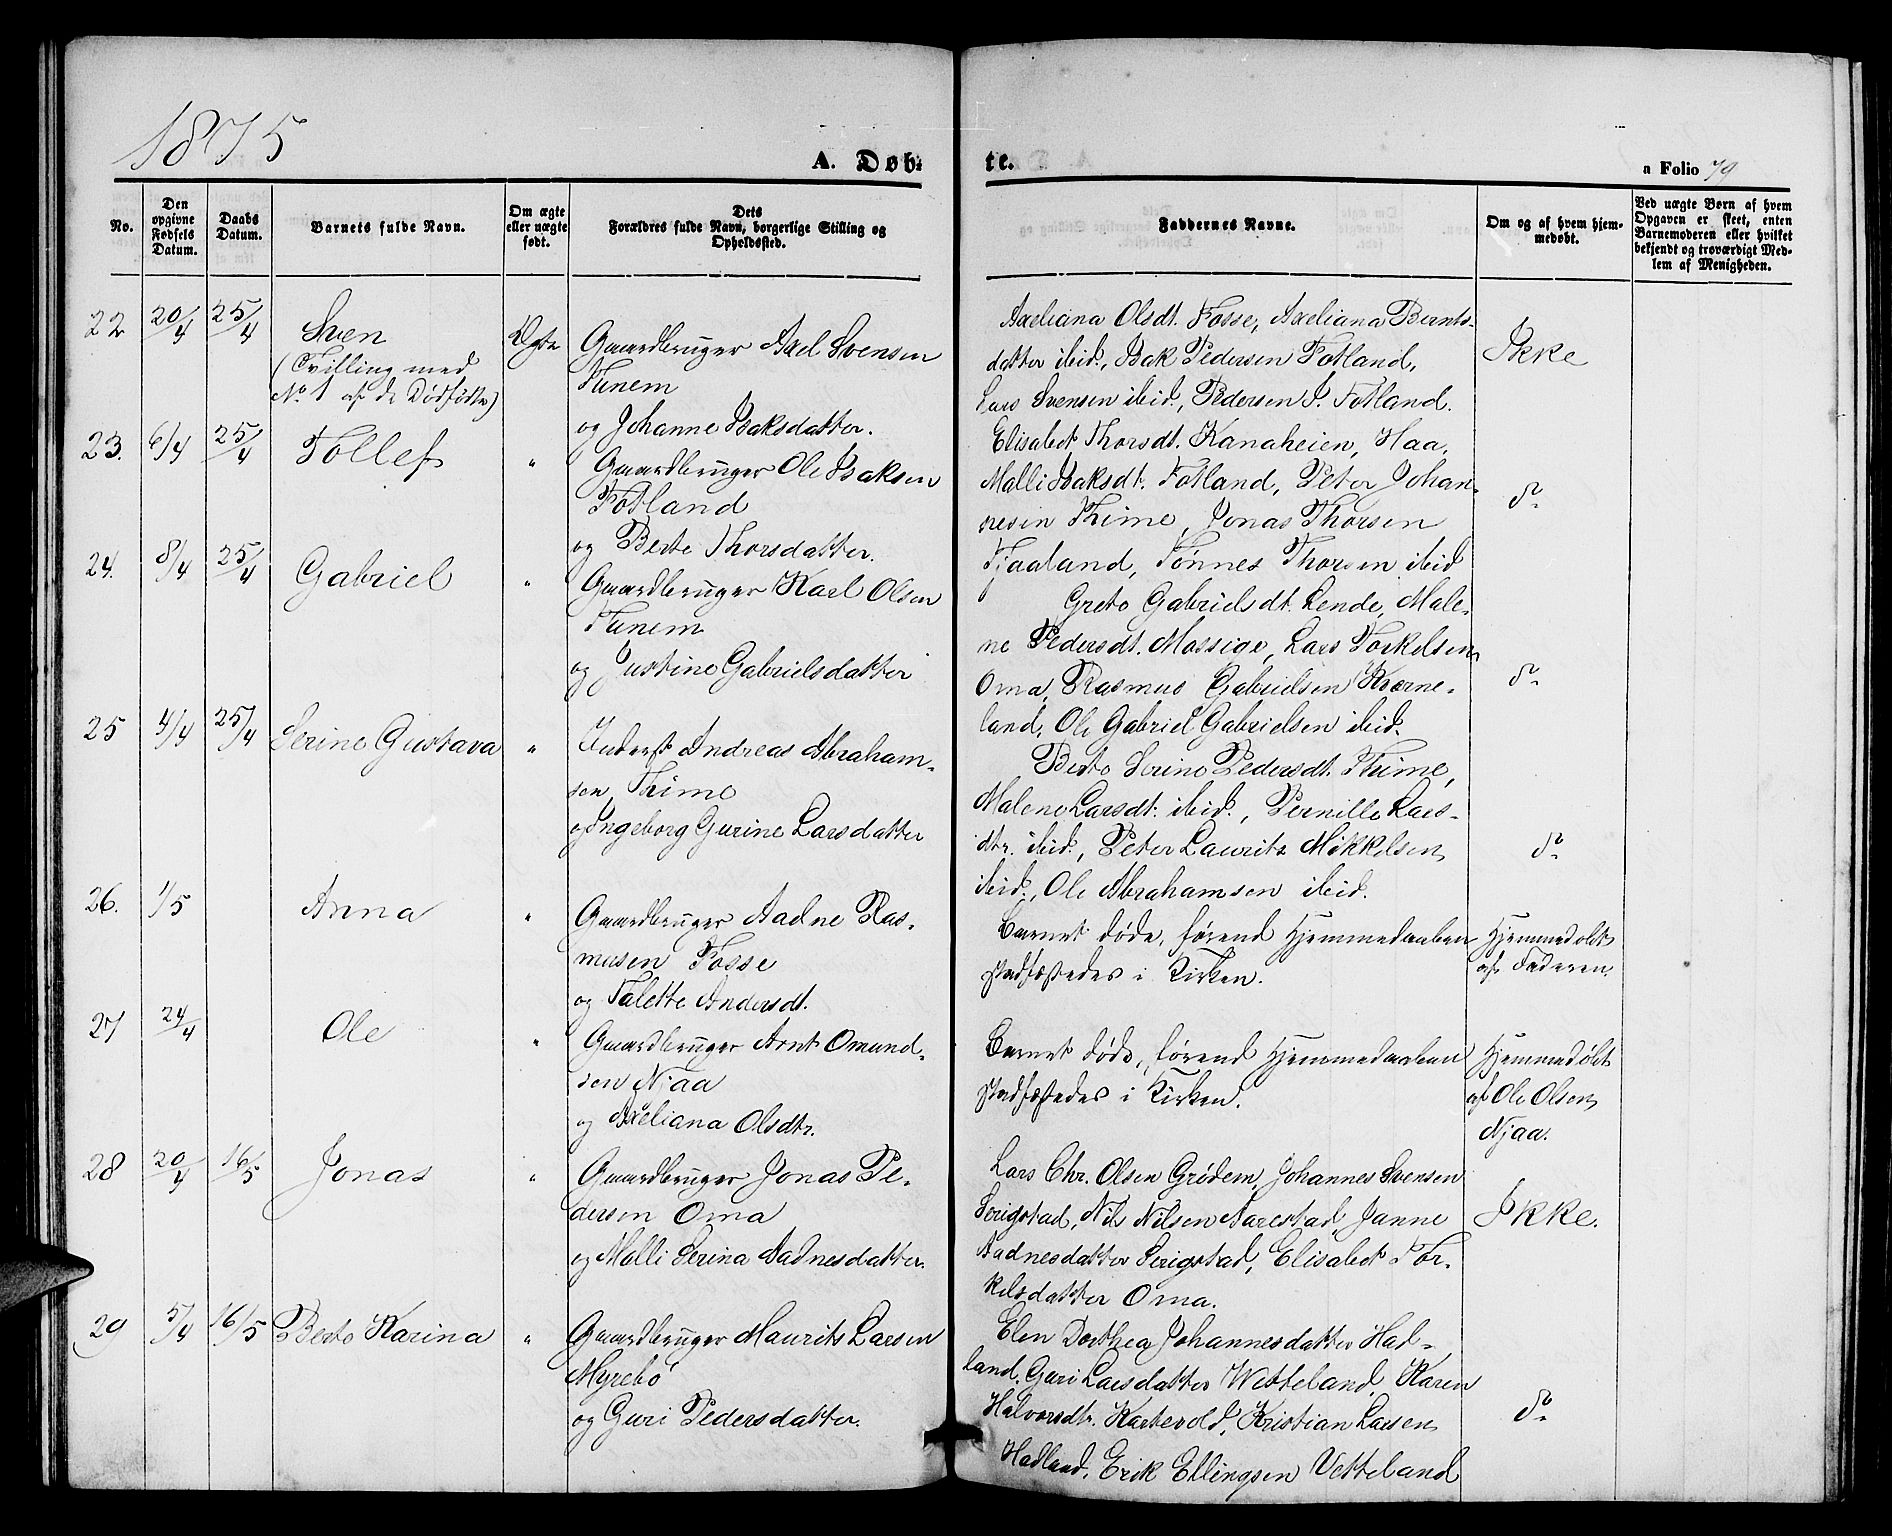 1875
A. Døb-
te.
a Folio 79
No.
Den opgivne Fødsels Datum.
Daabs Datum.
Barnets fulde Navn.
Om ægte eller uægte født.
Dets Forældres fulde Navn, borgerlige Stilling og Opholdssted.
Faddernes Navne.
Om og af hvem hjem-medøbt.
Ved uægte Børn af hvem Opgaven er skeet, enten Barnemoderen eller hvilket bekjendt og troværdigt Med-lem af Menigheden.
22 20/4 25/4 Sven
(Tvilling med
No. 1 af de Dødfødte)
Ægte
Gaardbruger Axel Svensen
Tunem
og Johanne Isaksdatter.
Axeliana Olsdt. Fosse, Axeliana Bernts-
datter ibid., Isak Pedersen Fotland,
Lars Svensen ibid., Peder P. Fotland.
Ikke
23. 6/4 25/4 Tollef "
Gaardbruger Ole Isaksen
Fotland
og Berte Thorsdatter.
Elisabet Thorsdt. Kanaheien, Haa,
Malli Isaksdt. Fotland, Peter Johan-
nesen Thime, Jonas Thorsen
Fjaaland, Tønnes Thorsen ibid
do
24. 8/4 25/4 Gabriel "
Gaardbruger Karl Olsen
Tunem
og Justine Gabrielsdatter
Grete Gabrielsdt. Lende, Male-
ne Pedersdt. Mossige, Lars Torkelsen
Oma, Rasmus Gabrielsen Kverne-
land, Ole Gabriel Gabrielsen ibid.
do
25 4/4 25/4 Serine Gustava "
Inderst Andreas Abraham-
sen, Thime
og Ingeborg Gurine Larsdatter
Berte Serine Pedersdt. Thime,
Malene Larsdt. ibid., Pernille Lars-
dtr. ibid., Peter Laurits Mikkelsen
ibid., Ole Abrahamsen ibid.
do
26. 1/5 Anna "
Gaardbruger Aadne Ras-
musen Fosse
og Talette Andersdt.
Barnet døde, førend Hjemmedaaben
stadfæstedes i Kirken.
Hjemmedøbt
af Faderen.
27 24/4 Ole "
Gaardbruger Arnt Omund-
sen Njaa
og Axeliana Olsdtr.
Barnet døde, førend Hjemmedaaben
stadfæstedes i Kirken.
Hjemmedøbt
af Ole Olsen
Njaa.
28 20/4 16/5 Jonas "
Gaardbruger Jonas Pe-
dersen Oma
og Malli Serina Aadnesdatter.
Lars Chr. Olsen Grødem, Johannes Svensen
Serigstad, Nils Nilsen Aarestad, Janne
Aadnesdatter Serigstad, Elisabet Tor-
kelsdatter Oma.
Ikke.
29 5/4 16/5 Berte Karina "
Gaardbruger Maurits Larsen
Myrebø
og Guri Pedersdatter.
Elen Dorthea Johannesdatter Had-
land, Guri Larsdatter Wetteland, Karen
Halvorsdtr. Kartevold, Kristian Larsen
Hadland, Erik Ellingsen Vetteland
do